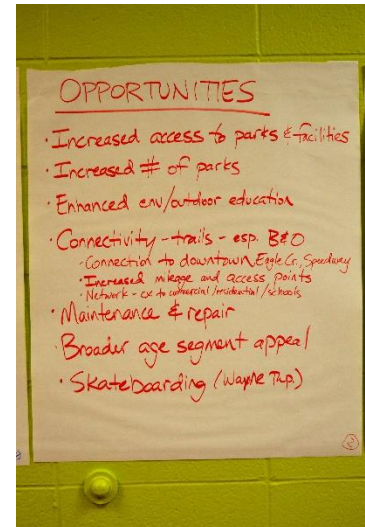 OPPORTUNITIES
· Increased access to parks & facilities
· Increased # of parks
· Enhanced env/outdoor education
· Connectivity - trails - esp. B&O
- Connection to downtown, Eagle Cr., Speedway
- Increased mileage and access points
- Network - cx to commercial/residential/schools
· Maintenance & repair
· Broader age segment appeal
· Skateboarding (Wayne Twp.)